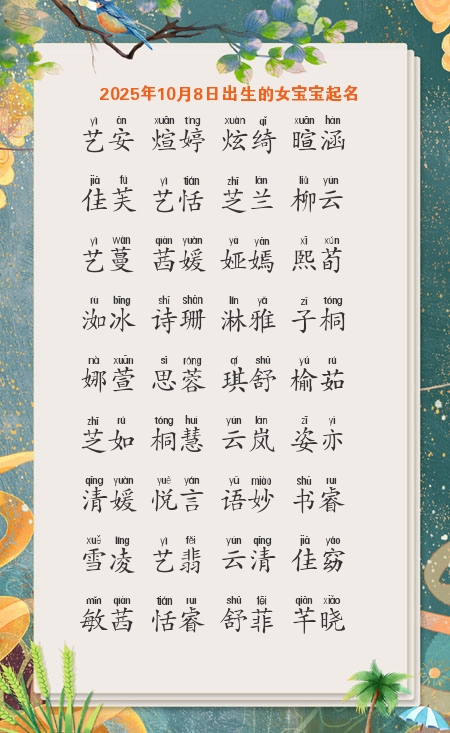 2025年10月8日出生的女宝宝起名
yì ān xuān tíng xuàn qǐ xuān hán
艺安 煊婷 炫绮 暄涵
jiā fú yì tián zhī lán liǔ yún
佳芙 艺恬 芝兰 柳云
yì wàn qiàn yuàn yà yān xī xún
艺蔓 茜媛 娅嫣 熙荀
rù bīng shī shān lín yǎ zǐ tóng
洳冰 诗珊 淋雅 子桐
nà xuān sī róng qí shū yú rú
娜萱 思蓉 琪舒 榆茹
zhī rú tóng huì yún lán zī yì
芝如 桐慧 云岚 姿亦
qīng yuàn yuè yán yǔ miào shū ruì
清媛 悦言 语妙 书睿
xuě líng yì fěi yún qīng jiā yǎo
雪凌 艺翡 云清 佳窈
mǐn qiàn tián ruì shū fēi qiān xiǎo
敏茜 恬睿 舒菲 芊晓